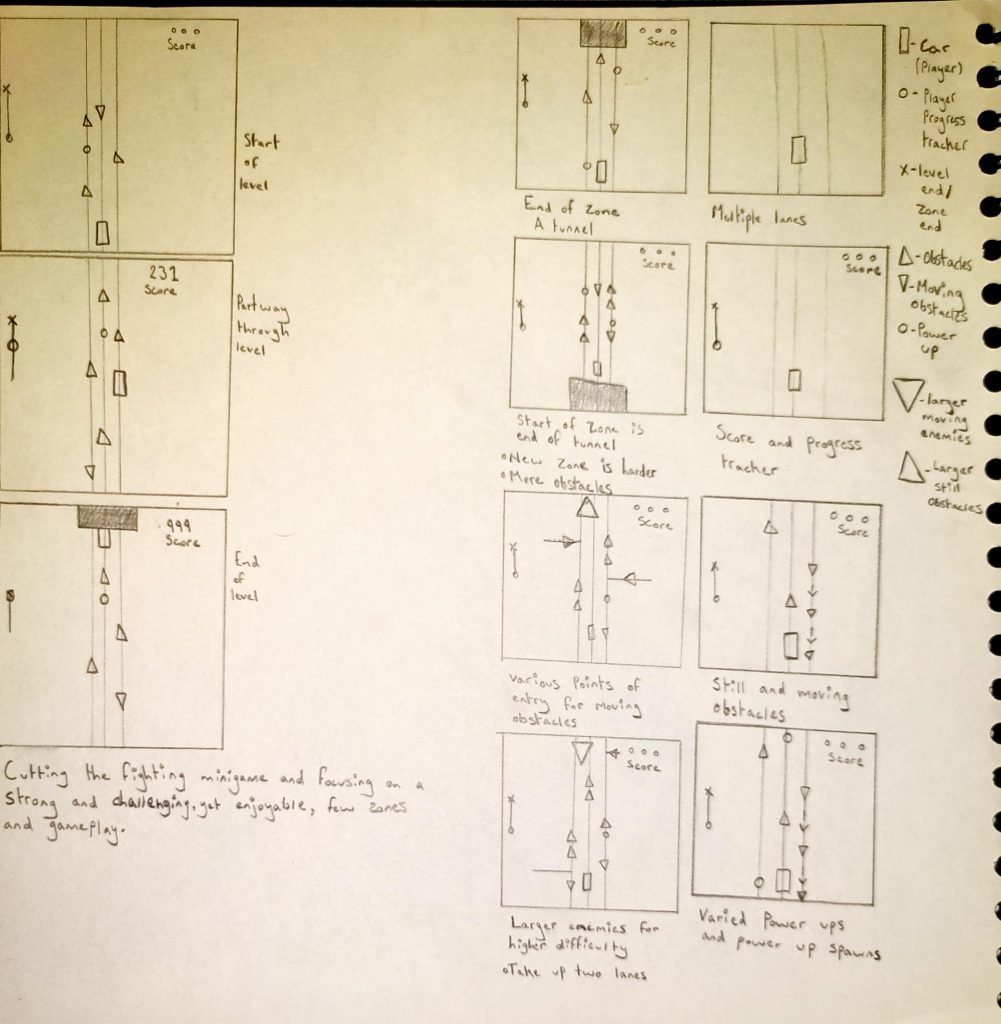 Score
Start
of
level
231
Score
Partway
through
level
999
Score
End
of
level
Cutting the fighting minigame and focusing on a
strong and challenging, yet enjoyable, few zones
and gameplay.
Score
End of Zone
A tunnel
Multiple lanes
Score
Start of Zone is
end of tunnel
New Zone is harder
More obstacles
Score
Score and progress
tracker
Score
Various points of
entry for moving
obstacles
Score
Still and moving
obstacles
Score
Larger enemies for
higher difficulty
Take up two lanes
Score
Varied Power ups
and power up spawns
- Car
(Player)
- Player
Progress
tracker
x - level
end/
Zone
end
- Obstacles
- Moving
obstacles
- Power
up
- larger
moving
enemies
- Larger
still
obstacles